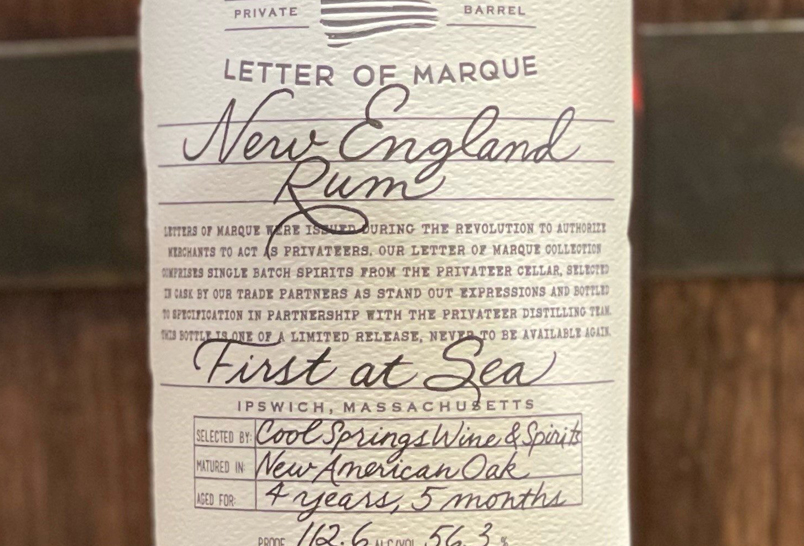 PRIVATE BARREL
LETTER OF MARQUE
New England
Rum
LETTERS OF MARQUE WERE ISSUED DURING THE REVOLUTION TO AUTHORIZE
MERCHANTS TO ACT AS PRIVATEERS. OUR LETTER OF MARQUE COLLECTION
COMPRISES SINGLE BATCH SPIRITS FROM THE PRIVATEER CELLAR, SELECTED
IN CASK BY OUR TRADE PARTNERS AS STAND OUT EXPRESSIONS AND BOTTLED
TO SPECIFICATION IN PARTNERSHIP WITH THE PRIVATEER DISTILLING TEAM.
THIS BOTTLE IS ONE OF A LIMITED RELEASE, NEVER TO BE AVAILABLE AGAIN.
First at Sea
IPSWICH, MASSACHUSETTS
SELECTED BY: Cool Springs Wine & Spirits
MATURED IN: New American Oak
AGED FOR: 4 years, 5 months
PROOF 112.6 ALC/VOL 56.3 %